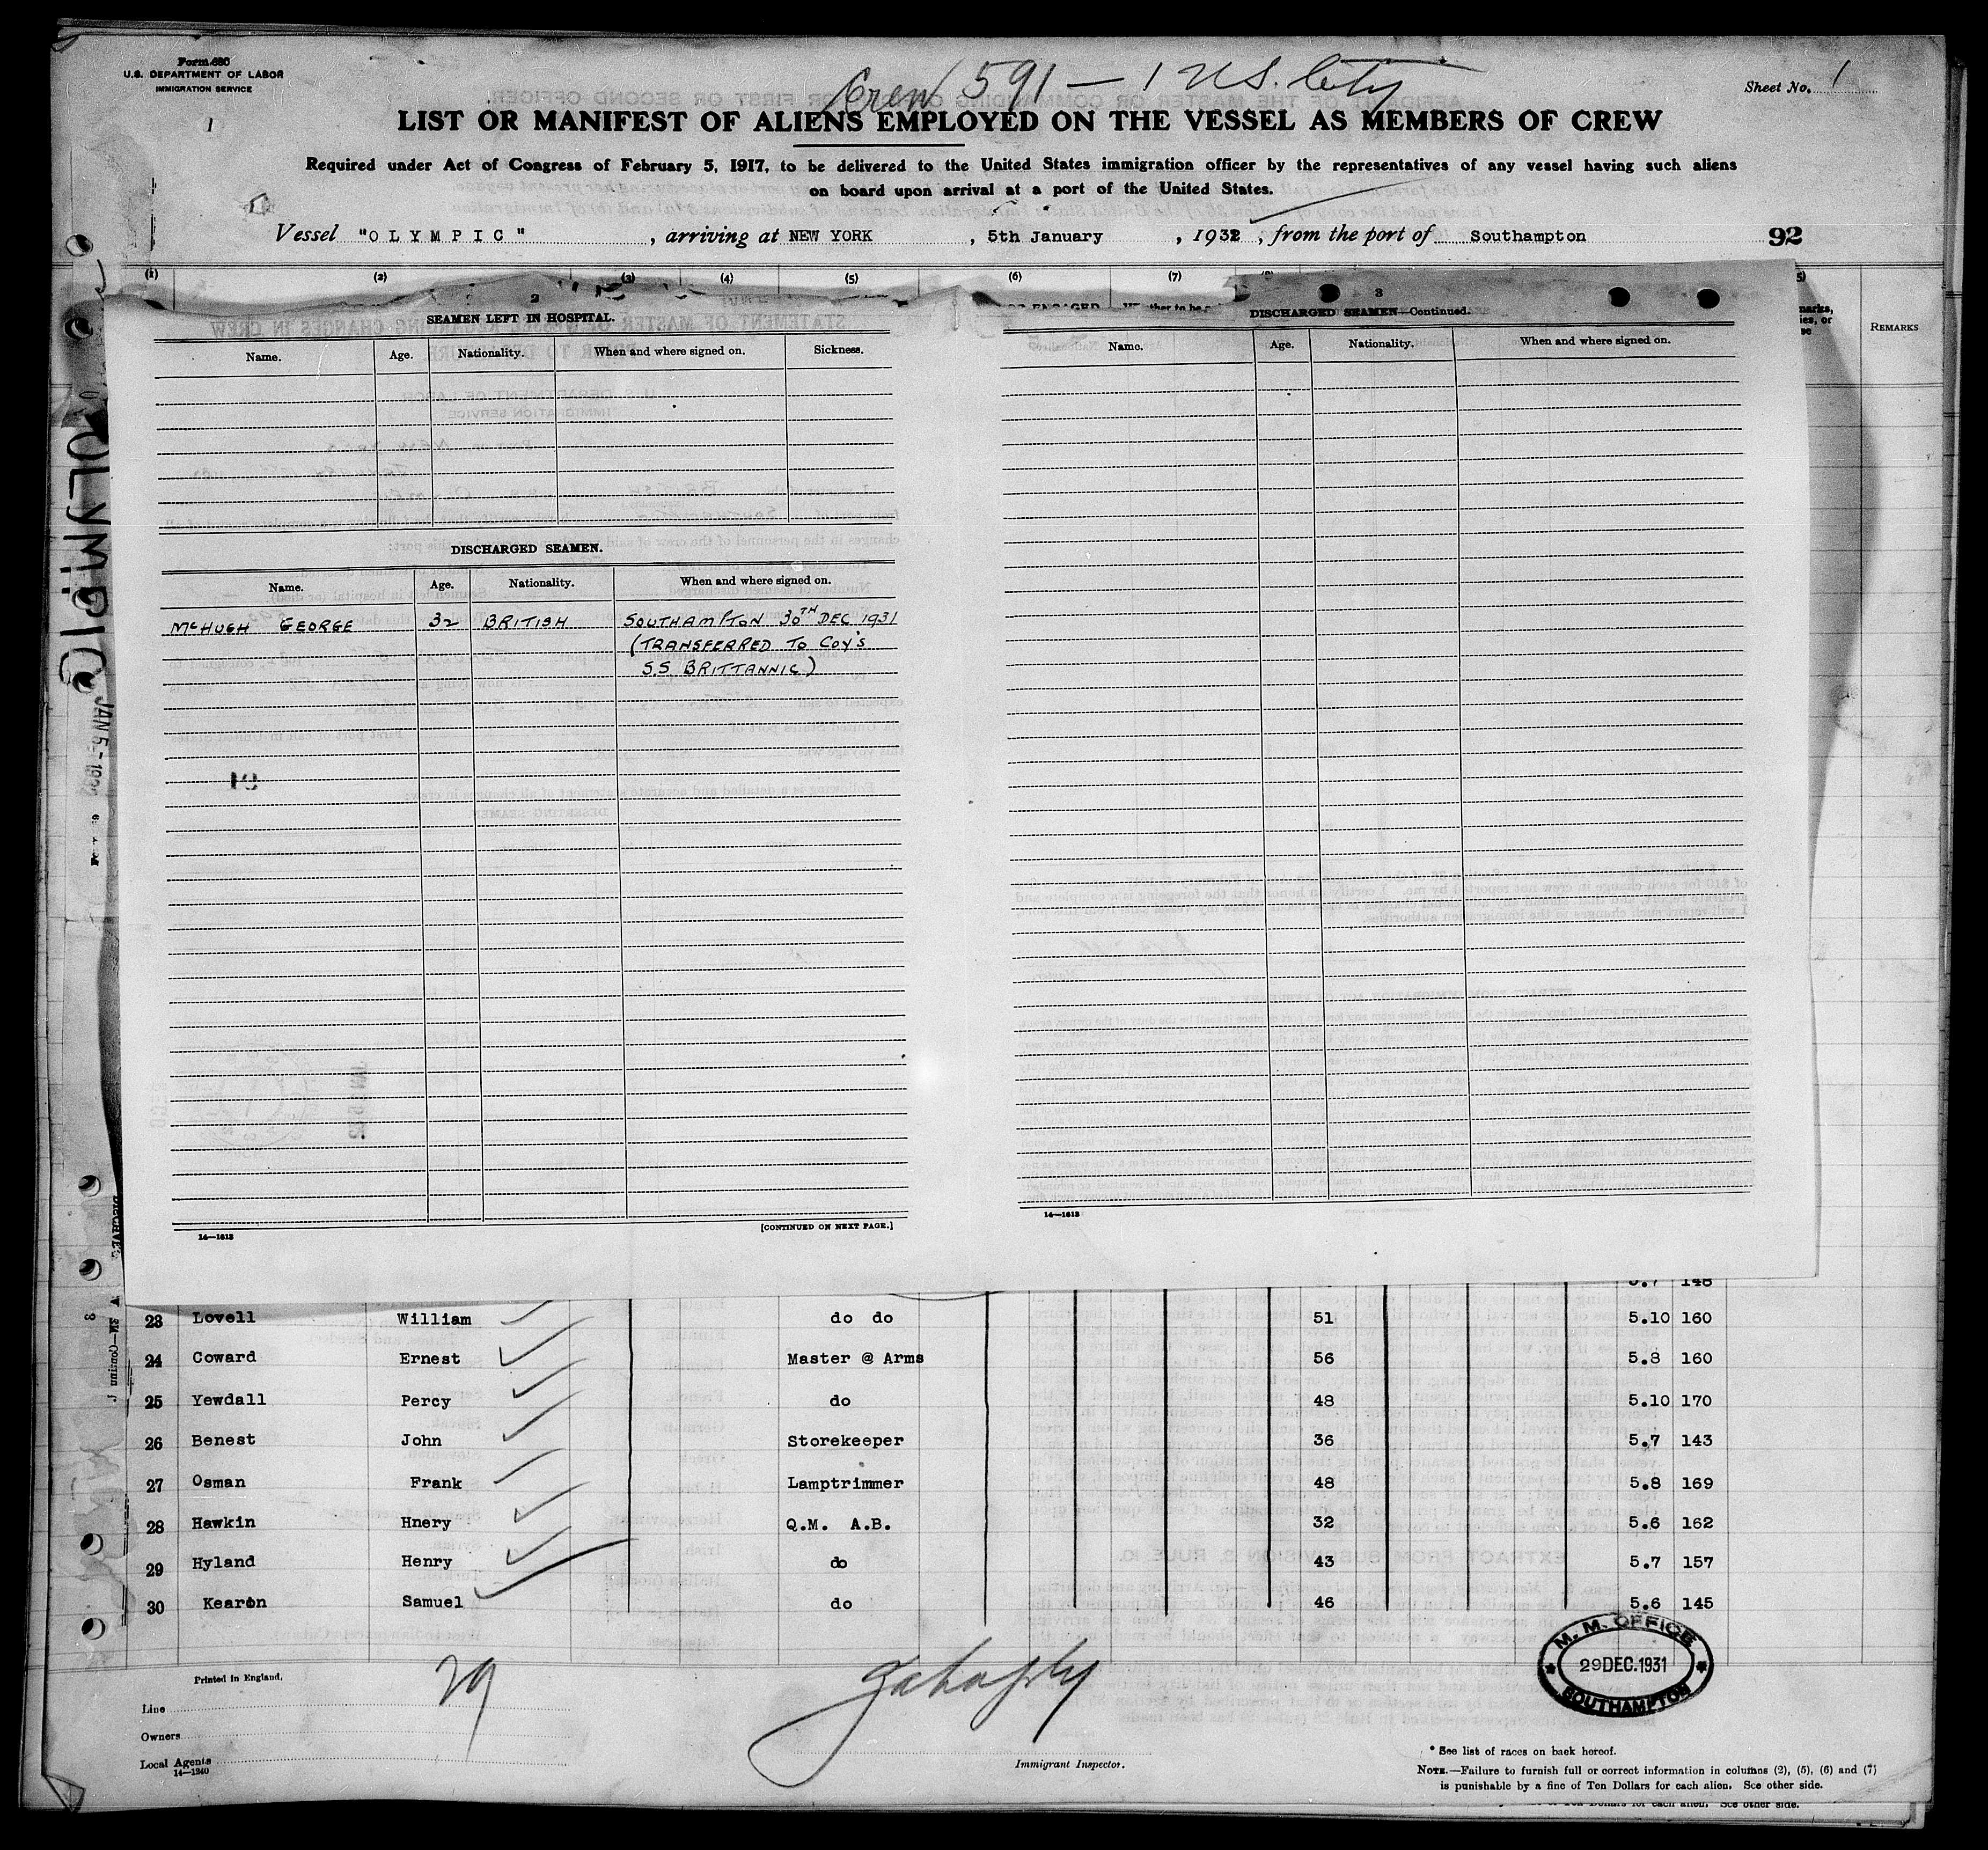 Form 680
U.S. DEPARTMENT OF LABOR
IMMIGRATION SERVICE
1
Crew 591 — 1 U.S. City
Sheet No. 1
LIST OR MANIFEST OF ALIENS EMPLOYED ON THE VESSEL AS MEMBERS OF CREW
Required under Act of Congress of February 5, 1917, to be delivered to the United States immigration officer by the representatives of any vessel having such aliens
on board upon arrival at a port of the United States.
Vessel "OLYMPIC", arriving at NEW YORK, 5th January, 1932, from the port of Southampton 92
(1) (2) (3) (4) (5) (6) (7)
REMARKS
2
SEAMEN LEFT IN HOSPITAL.
Name. Age. Nationality. When and where signed on. Sickness.
DISCHARGED SEAMEN.
Name. Age. Nationality. When and where signed on.
McHUGH GEORGE 32 BRITISH SOUTHAMPTON 30TH DEC 1931
(TRANSFERRED TO COY'S
S.S BRITTANNIC)
14—1613
[CONTINUED ON NEXT PAGE.]
3
DISCHARGED SEAMEN—Continued.
Name. Age. Nationality. When and where signed on.
14—1613
OLYMPIC
JAN 5 - 1932
5.7 148
23 Lovell William do do 51 5.10 160
24 Coward Ernest Master @ Arms 56 5.8 160
25 Yewdall Percy do 48 5.10 170
26 Benest John Storekeeper 36 5.7 143
27 Osman Frank Lamptrimmer 48 5.8 169
28 Hawkin Hnery Q.M. A.B. 32 5.6 162
29 Hyland Henry do 43 5.7 157
30 Kearon Samuel do 46 5.6 145
M. M. OFFICE
29 DEC. 1931
SOUTHAMPTON
Printed in England.
29
Line
Owners
Local Agents
14—1240
Immigrant Inspector.
* See list of races on back hereof.
NOTE.—Failure to furnish full or correct information in columns (2), (5), (6) and (7)
is punishable by a fine of Ten Dollars for each alien. See other side.
of Ten Dollars for each alien. See other side.